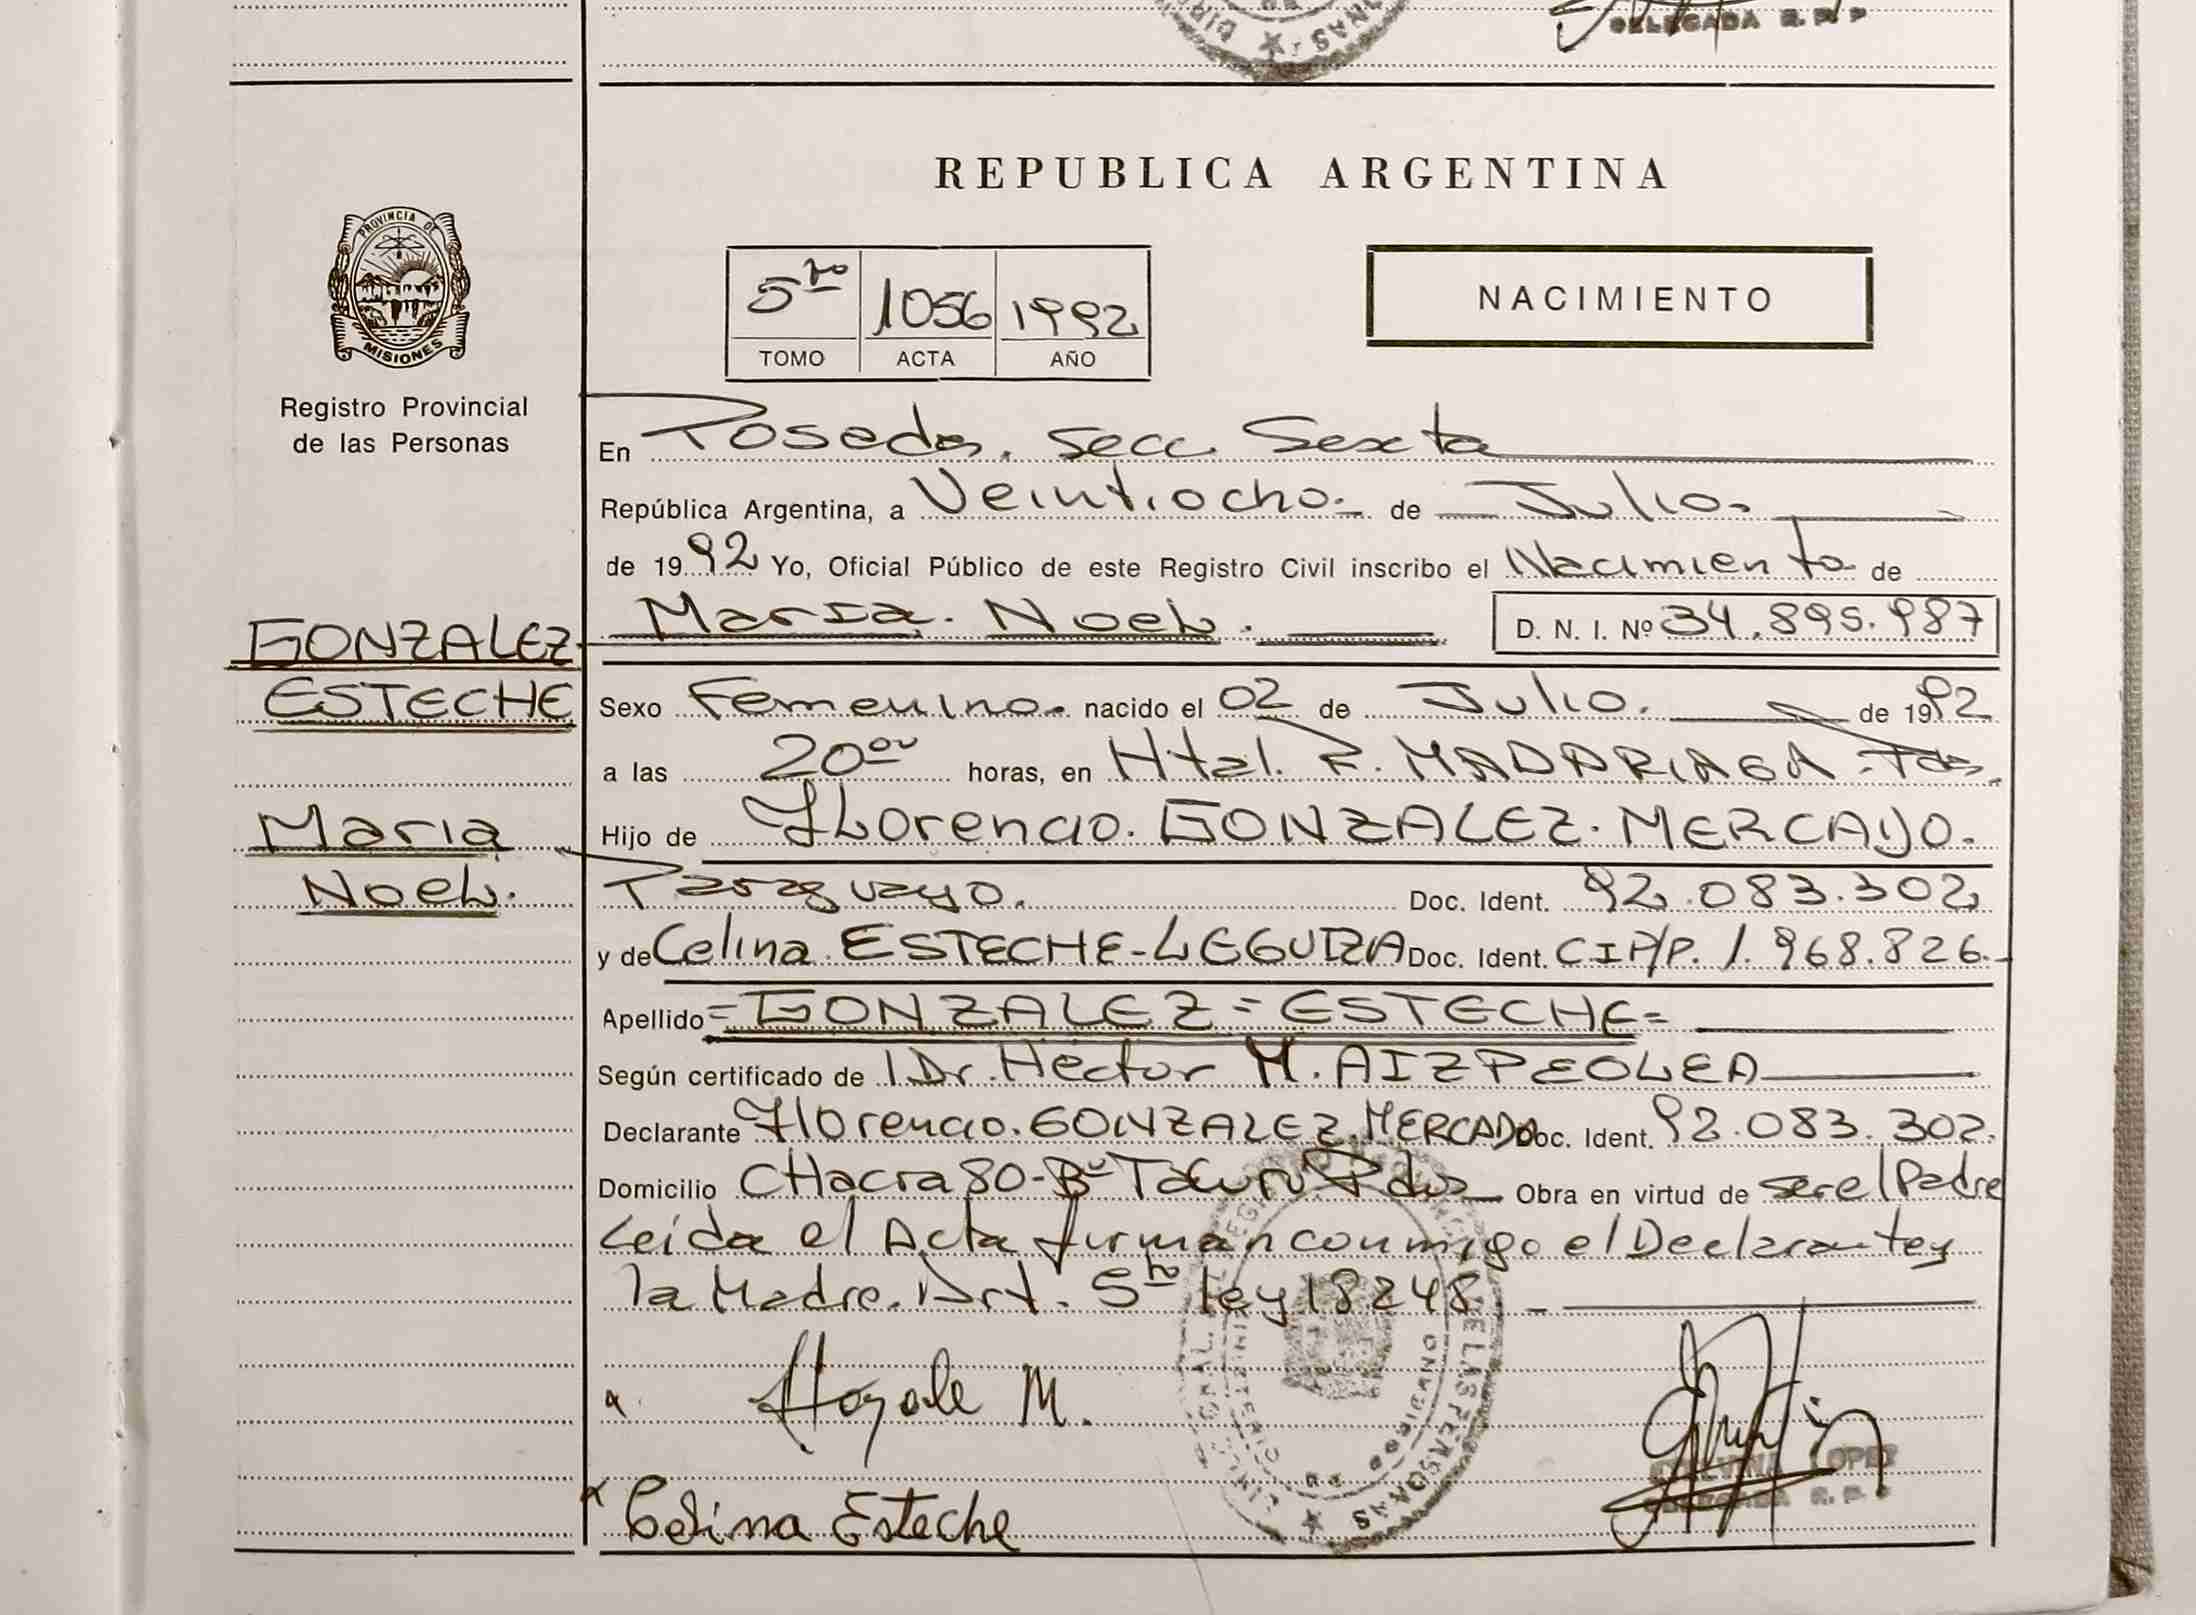 DELEGADA R. P. P
REPUBLICA ARGENTINA
PROVINCIA DE
MISIONES
Registro Provincial
de las Personas
5to 1056 1992
TOMO ACTA AÑO
NACIMIENTO
En Posadas. Secc. Sexta
República Argentina, a Veintiocho- de Julio.
de 1992 Yo, Oficial Público de este Registro Civil inscribo el Nacimiento de
Maria. Noel. D. N. I. Nº 34.895.987
GONZALEZ
ESTECHE
Maria
Noel.
Sexo Femenino. nacido el 02 de Julio. de 1992
a las 20ºº horas, en Htal. R. MADARIAGA - Pdas.
Hijo de Florencio. GONZALEZ. MERCADO.
Paraguayo. Doc. Ident. 92.083.302
y de Celina. ESTECHE-LEGUIZA Doc. Ident. CIP/P. 1.968.826.-
Apellido = GONZALEZ = ESTECHE =
Según certificado de Dr. Hector M. AIZPEOLEA
Declarante Florencio. GONZALEZ. MERCADO Doc. Ident. 92.083.302.
Domicilio CHacra 80-Bº Tacurú Pdas Obra en virtud de ser el Padre
Leida el Acta firman conmigo el Declarante y
la Madre. Art. 5to Ley 18248 -
M.
Celina Esteche
LOPEZ
DELEGADA R. P. P